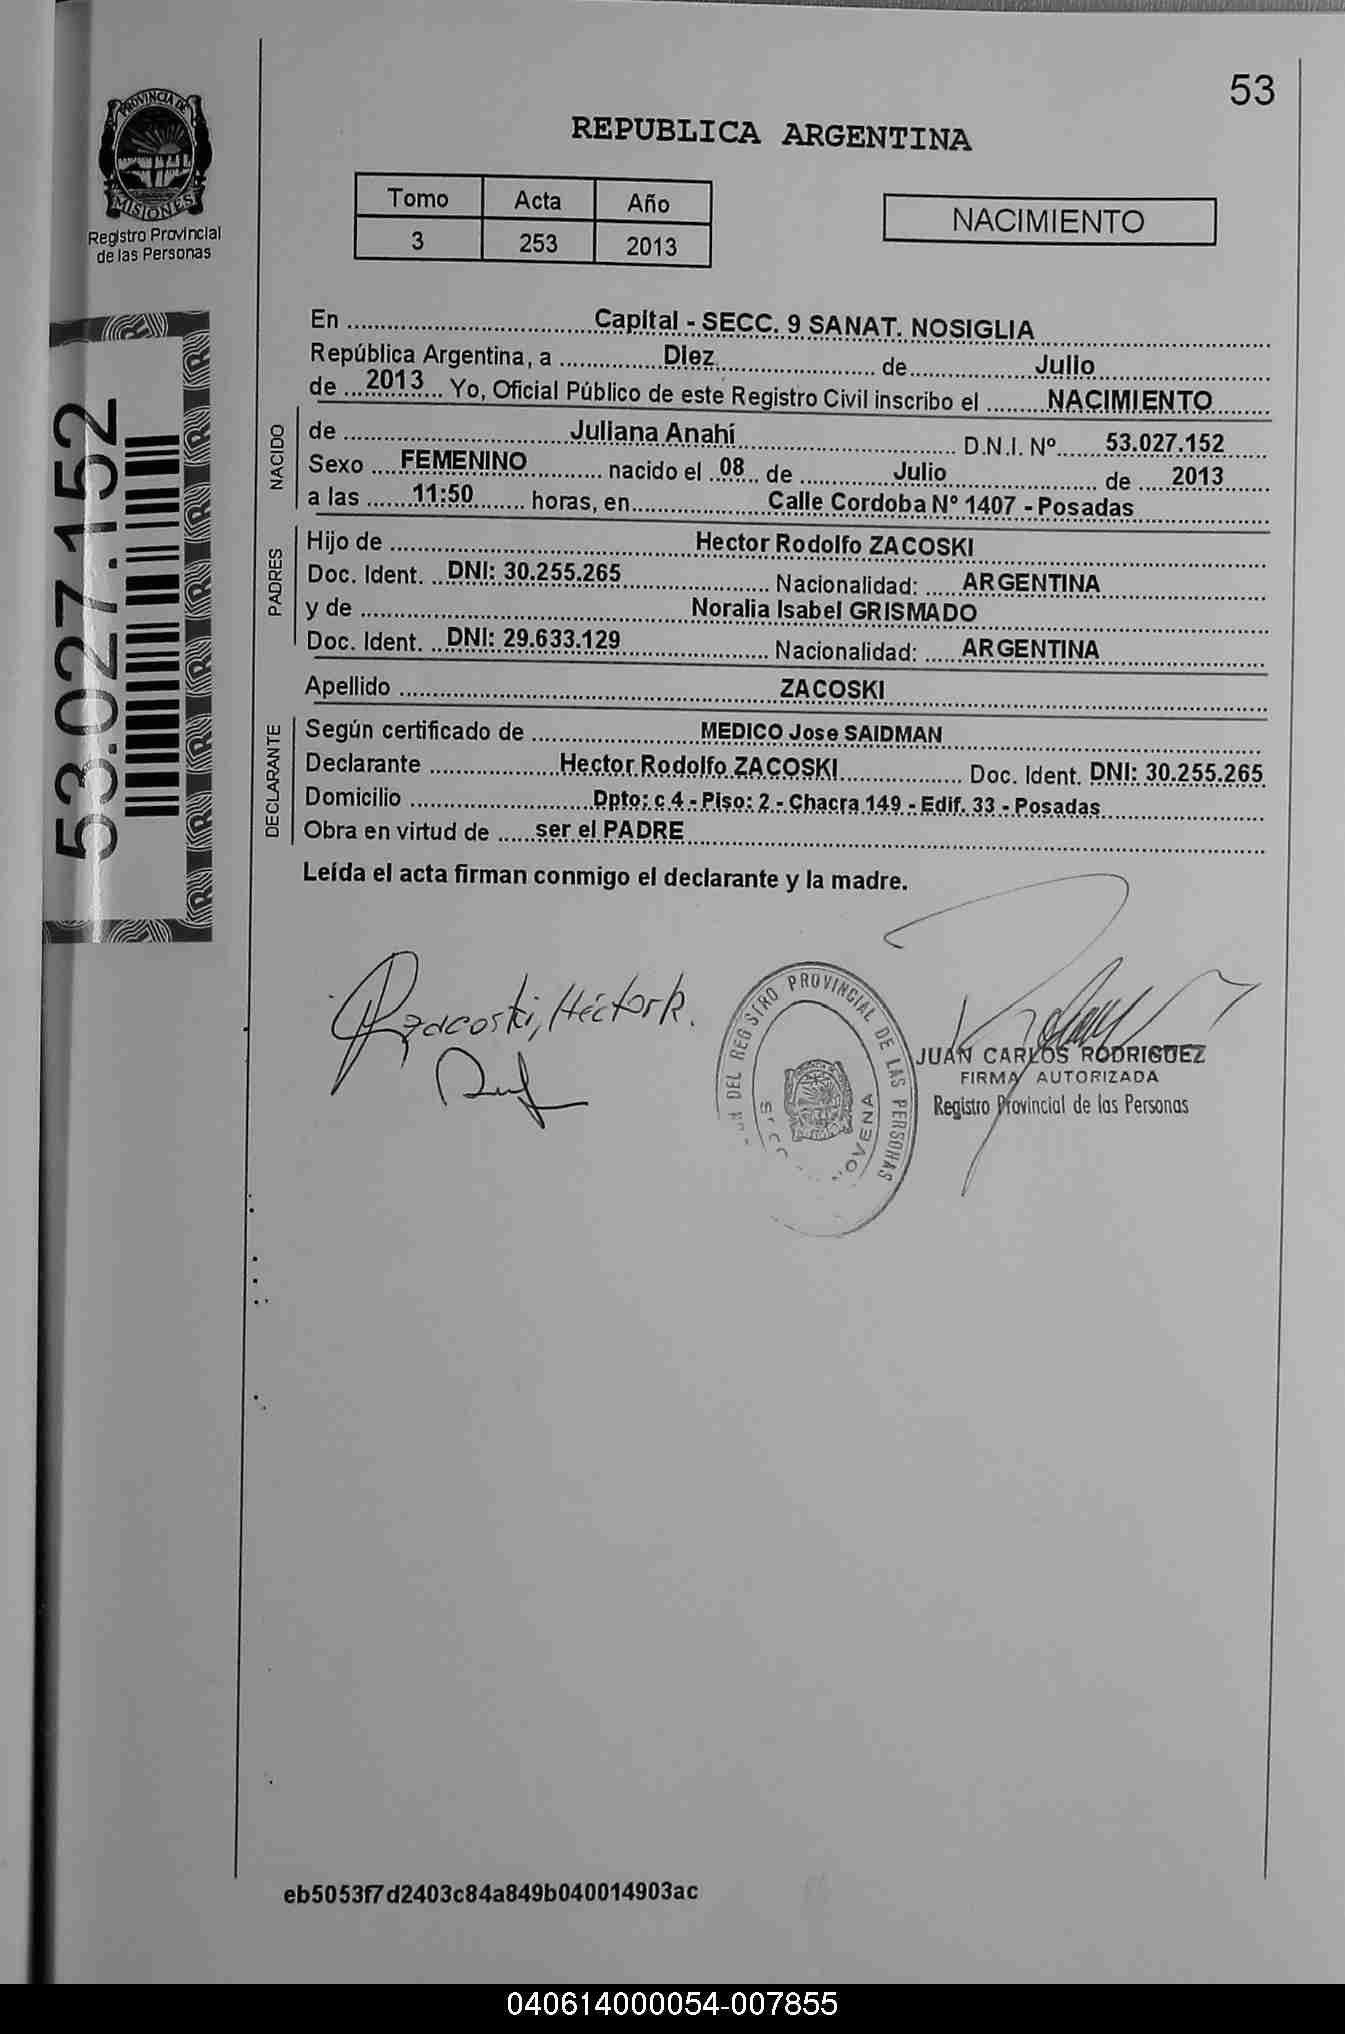 53
PROVINCIA DE
MISIONES
Registro Provincial
de las Personas
REPUBLICA ARGENTINA
Tomo Acta Año
3 253 2013
NACIMIENTO
53.027.152
En ..... Capital - SECC. 9 SANAT. NOSIGLIA
República Argentina, a ..... Diez ..... de ..... Julio
de ... 2013 ... Yo, Oficial Público de este Registro Civil inscribo el ..... NACIMIENTO
NACIDO
de ..... Juliana Anahí ..... D.N.I. Nº ..... 53.027.152
Sexo .... FEMENINO ..... nacido el .08. de ..... Julio ..... de .... 2013
a las ..... 11:50 ..... horas, en ..... Calle Cordoba Nº 1407 - Posadas
PADRES
Hijo de ..... Hector Rodolfo ZACOSKI
Doc. Ident. .. DNI: 30.255.265 ..... Nacionalidad: ..... ARGENTINA
y de ..... Noralia Isabel GRISMADO
Doc. Ident. .. DNI: 29.633.129 ..... Nacionalidad: ..... ARGENTINA
Apellido ..... ZACOSKI
DECLARANTE
Según certificado de ..... MEDICO Jose SAIDMAN
Declarante ..... Hector Rodolfo ZACOSKI ..... Doc. Ident. DNI: 30.255.265
Domicilio ..... Dpto: c 4 - Piso: 2 - Chacra 149 - Edif. 33 - Posadas
Obra en virtud de ..... ser el PADRE
Leída el acta firman conmigo el declarante y la madre.
Zacoski, Héctor R.
DEL REGISTRO PROVINCIAL DE LAS PERSONAS
JUAN CARLOS RODRIGUEZ
FIRMA AUTORIZADA
Registro Provincial de las Personas
eb5053f7d2403c84a849b040014903ac
040614000054-007855